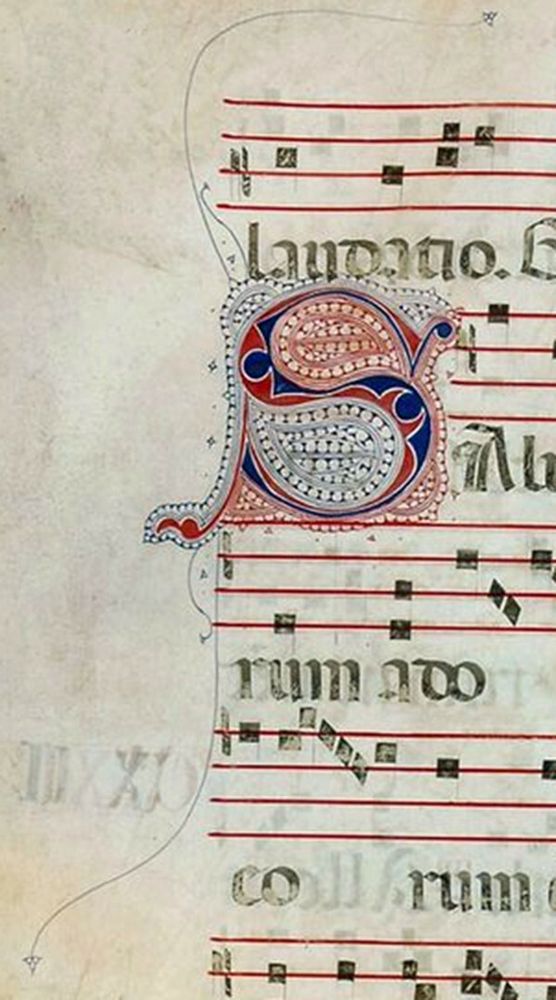 laudatio.
S Alu
rum ado
co rum